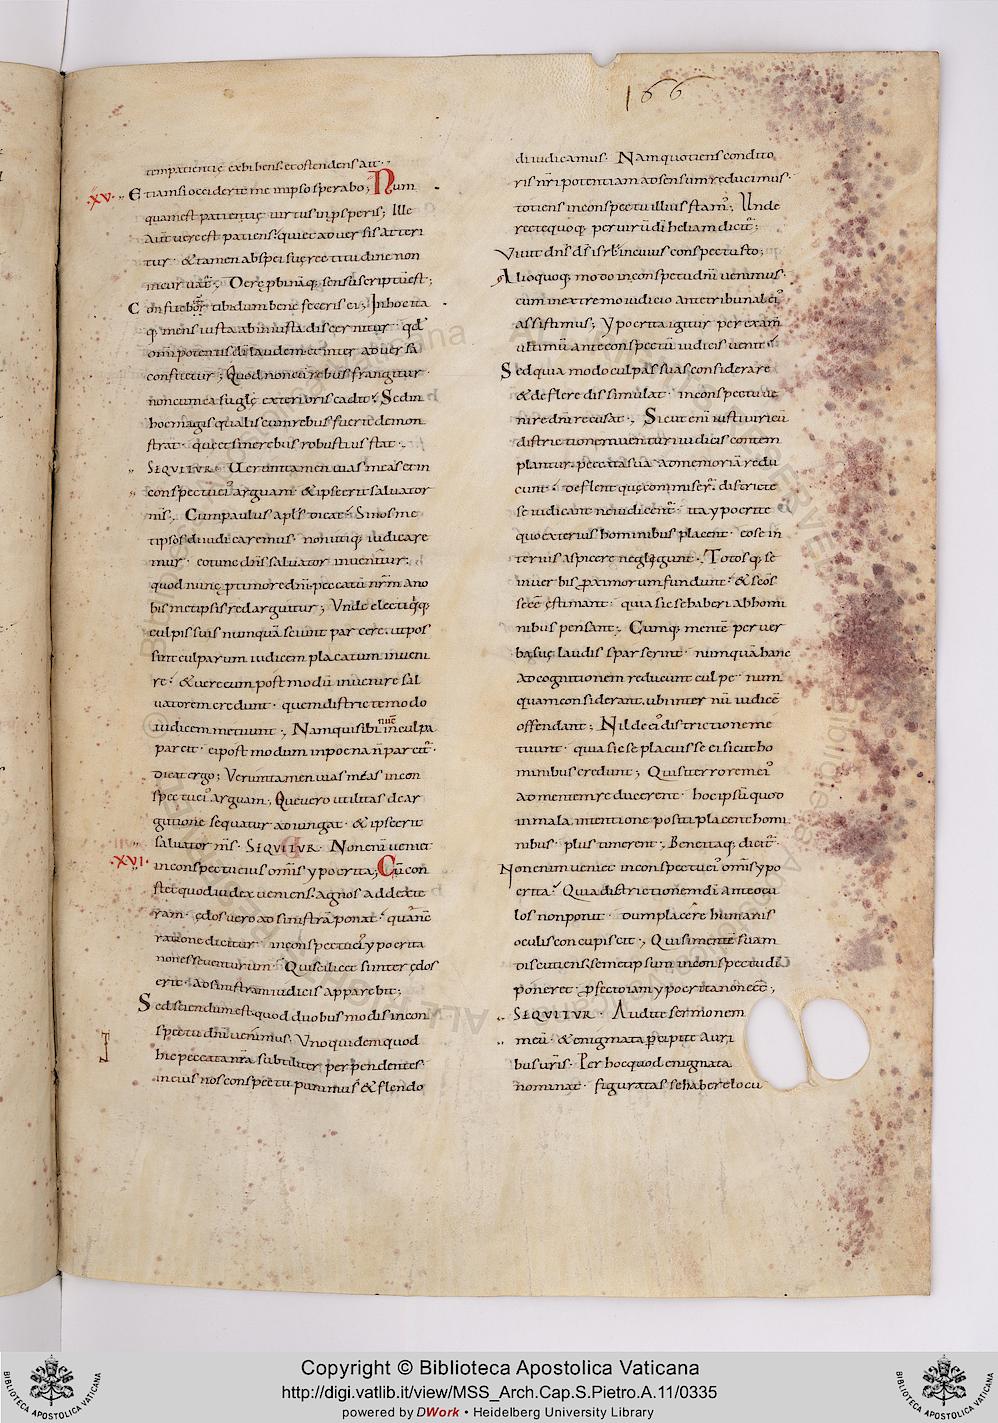 166
tempatientię exhibens. et ostendens ait.
·XV· Etiamsi occiderit me in ipso sperabo; Num
quam est patientię virtus in psperis; Ille
aut̄ vere est patiens. qui et adversis atteri
tur. & tamen ab spei suę rectitudine non
incurvat̄.
Confitebit̄ tibi dum bene feceris ei; In hoc ita
q; mens iusta ab iniusta discernitur. qđ
omipotentis dī laudem et inter adversa
confitetur; Quod non cū rebus frangitur.
non cum casu glę exterioris cadit. Sed in
hoc magis qualis cum rebus fuerit demon
strat. que et sine rebus robustius stat.
SEQUITUR. Verumtamen vias meas et in
conspectu ei᾽ arguam & ipse erit salvator
m̄s. Cum paulus apl̄s dicat. Si nos me
tipsos diiudicaremus. non utiq; iudicare
mur. et tunc dn̄s salvator invenitur.
quod nunc p timore dn̄i. peccatū nr̄m a no
bis metipsis redarguitur; Unde electi q̄q;
culpis suis numquā sciunt parcere. ut pos
sint culparum iudicem placatum inveni
re. & vere eum post modū invenire sal
vatorem credunt. quem districte modo
iudicem metuunt. Nam qui sibi nūc in culpa
parcit. ei post modum in poena n̄ parcit̄.
Dicat ergo; Verumtamen vias meas in con
spectu ei᾽ arguam. Que vero utilitas de ar
guitione sequatur adiungat. & ipse erit
salvator m̄s. SEQUITUR. Non enī veniet
·XVI· in conspectu eius om̄s ypocrita; Cū con
stet quod iudex veniens. agnos a dextete
ram. ędos vero ad sinistrā ponat. quā n̄c
ratione dicitur. in conspectu ei᾽ ypocrita
non esse venturum. Qui scilicet si inter ędos
erit. ad sinistram iudicis apparebit;
Sed sciendum est. quod duobus modis in con
spectu dn̄i venimus. Uno quidem quod
hic peccata nr̄a subtiliter perpendentes.
in eius nos conspectu punimus & flendo
diiudicamus. Nam quotiens condito
ris nr̄i potentiam ad sensum reducimus.
totiens in conspectu illius stam᾽. Unde
recte quoq; per virū dī heliam dicit̄;
Vivit dn̄s ds̄ isrl̄ in cuius conspectu sto;
Alio quoq; modo in conspectu dn̄i venimus.
cum in extremo iudicio ante tribunal ei᾽
assistimus; Ypocrita igitur per examē
ultimū ante conspectū iudicis venit.
Sed quia modo culpas suas considerare
& deflere dissimulat. in conspectu ve
nire dn̄i recusat. Sicut enī iusti viri cū
districtionem venturi iudicis contem
plantur. peccata sua ad memoriā redu
cunt. deflent que commiser̄. & districte
se iudicant ne iudicent̄. ita ypocrite
quo exterius hominibus placent. eo se in
ternis aspicere neglegunt. Totosq; se
in verbis p̄ximorum fundunt. & sc̄os
se eē estimant. quia sic se haberi ab homi
nibus pensant. Cumq; mentē per ver
ba suę laudis sparserint. numquā hanc
ad cognitionem reducunt culpe. num
quam considerant. ubi inter nū iudicē
offendant; Nil de ei᾽ districtione me
tuunt. quia sic se placuisse ei sicut ho
minibus credunt; Qui si terrorem ei᾽
ad mentem reducerent. hoc ipsū quod
in mala intentione positi placent homi
nibus. plus timerent. Bene itaq; dicit̄.
Non enim veniet in conspectu ei᾽ om̄s ypo
crita. Quia districtionem dī ante ocu
los non ponit. dum placere humanis
oculis concupiscit; Qui si mentē suam
discutiens. semetipsum in conspectu dī
poneret. p̄fecto iam ypocrita non eēt;
SEQUITUR. Audite sermonem
meū. & enigmata p̄cipite auri
bus vr̄is. Per hoc quod enigmata
nominat. figuratas se habere locu
Copyright © Biblioteca Apostolica Vaticana
http://digi.vatlib.it/view/MSS_Arch.Cap.S.Pietro.A.11/0335
powered by DWork • Heidelberg University Library
BIBLIOTECA APOSTOLICA VATICANA
BIBLIOTECA APOSTOLICA VATICANA